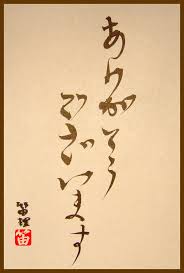 ありがとう
ございます
笛理
笛